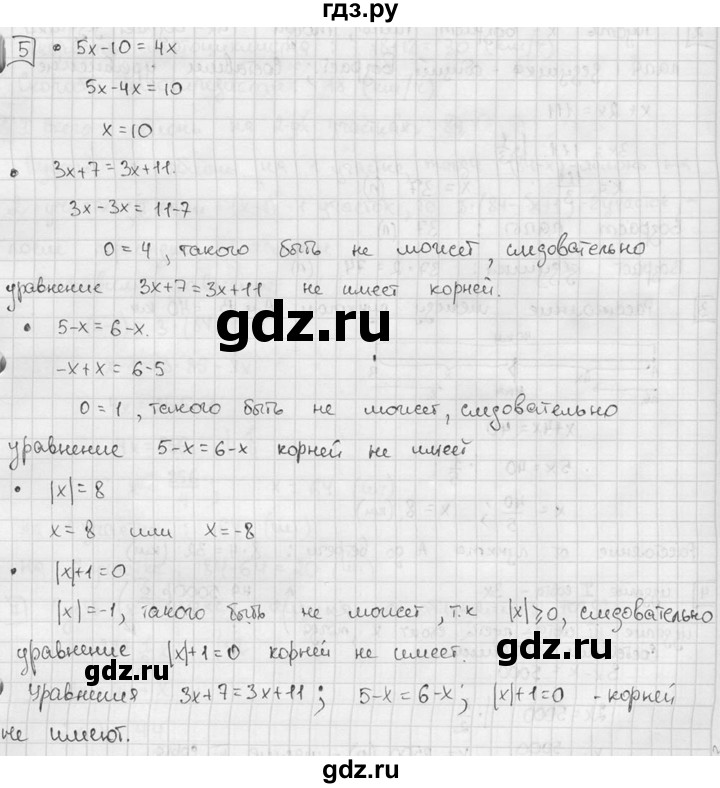 гдз.ру
5 • 5x-10=4x
5x-4x=10
x=10
• 3x+7=3x+11.
3x-3x=11-7
0=4, такого быть не может, следовательно
уравнение 3x+7=3x+11 не имеет корней.
gdz.ru
• 5-x=6-x.
-x+x=6-5
0=1, такого быть не может, следовательно
уравнение 5-x=6-x корней не имеет
• |x|=8
x=8 или x=-8
• |x|+1=0
|x|=-1, такого быть не может, т.к |x|⩾0, следовательно
gdz.ru
уравнение |x|+1=0 корней не имеет.
gdz.ru
Уравнения 3x+7=3x+11; 5-x=6-x; |x|+1=0 - корней
не имеют.
gdz.ru